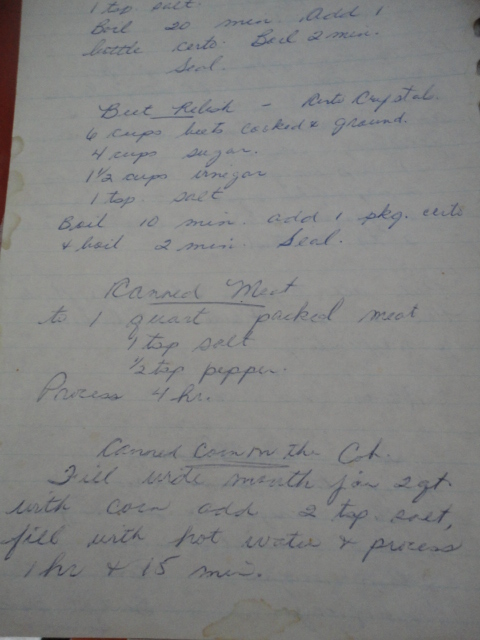 1 tsp. salt.
Boil 20 min. Add 1
bottle certo. Boil 2 min.
Seal.
Beet Relish - Certo Crystals.
6 cups beets cooked & ground.
4 cups sugar.
1 1/2 cups vinegar
1 tsp. salt
Boil 10 min. add 1 pkg. certo
& boil 2 min. Seal.
Canned Meat
to 1 quart packed meat
1 tsp salt
1/2 tsp pepper.
Process 4 hr.
Canned Corn on the Cob.
Fill wide mouth jar 2 qt.
with corn add 2 tsp. salt,
fill with hot water & process
1 hr & 15 min.